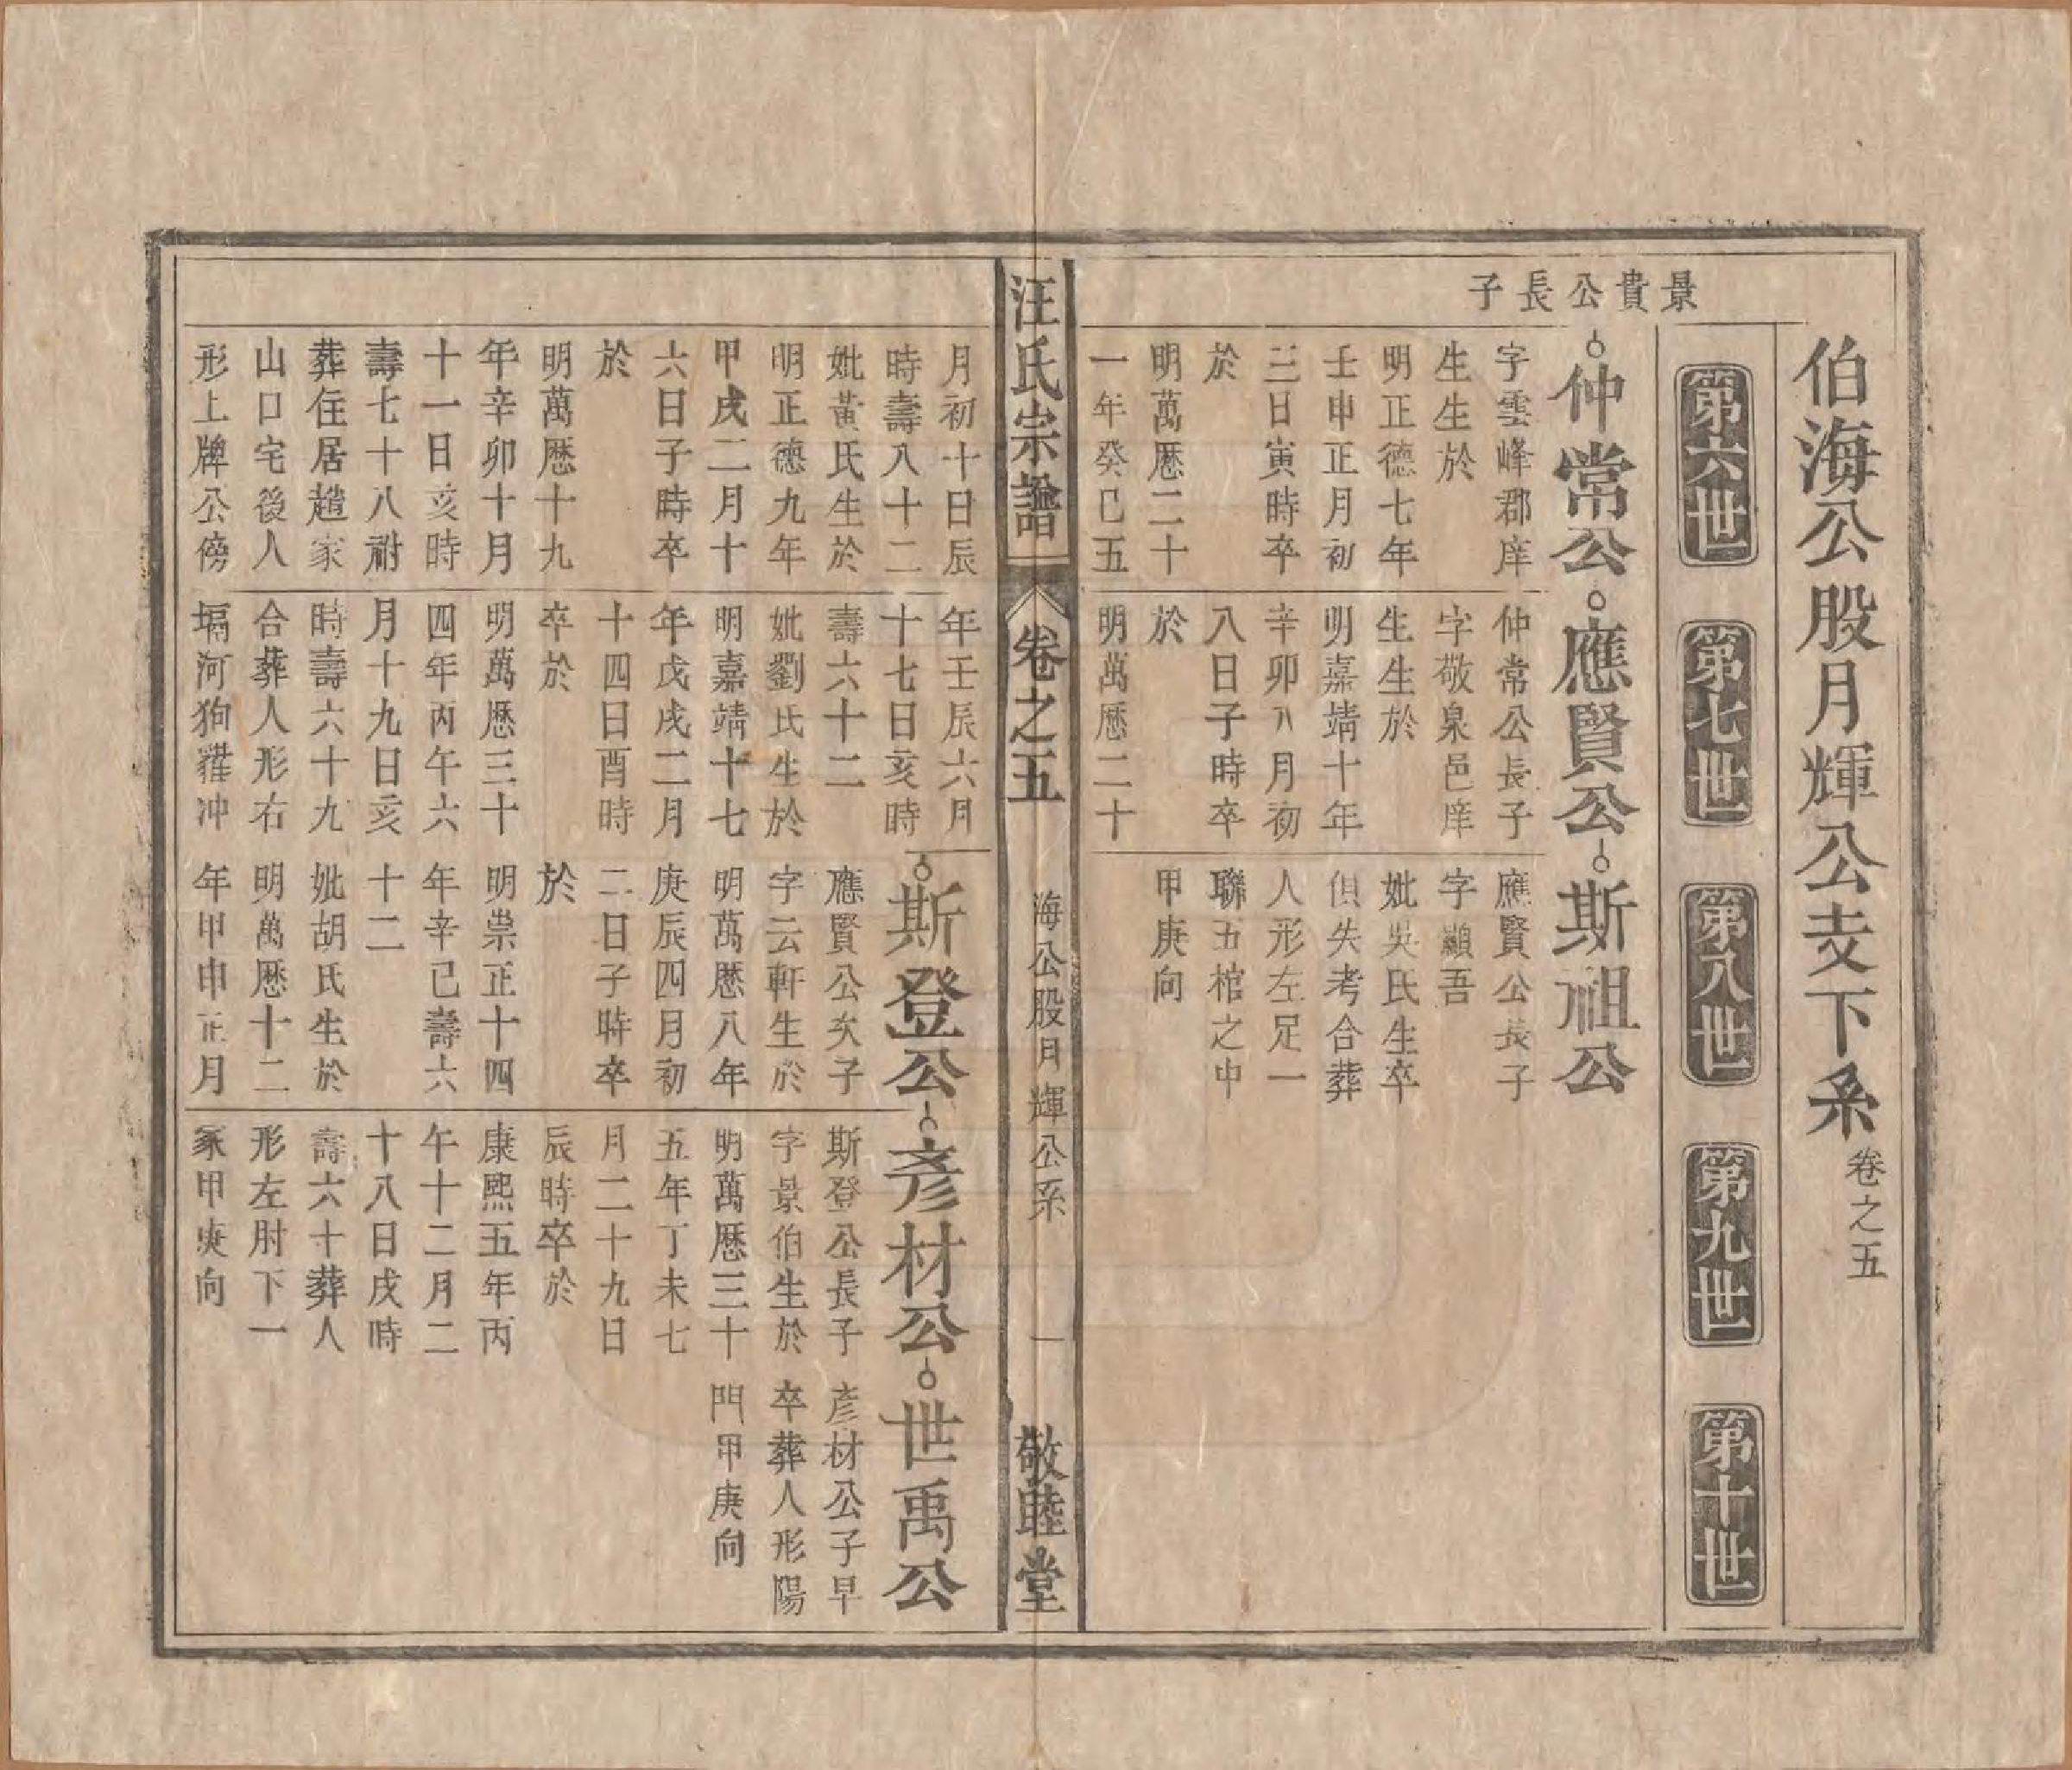 伯海公股月輝公支下系卷之五
第六世
第七世
第八世
第九世
第十世
景貴公長子
仲常公
字雲峰郡庠
生生於
明正德七年
壬申正月初
三日寅時卒
於
明萬厯二十
一年癸巳五
應賢公
仲常公長子
字敬泉邑庠
生生於
明嘉靖十年
辛卯八月初
八日子時卒
於
明萬厯二十
斯祖公
應賢公長子
字顯吾
妣吳氏生卒
俱失考合葬
人形左足一
聯五棺之中
甲庚向
汪氏宗譜
卷之五
海公股月輝公系
一
敬睦堂
月初十日辰
時壽八十二
妣黃氏生於
明正德九年
甲戌二月十
六日子時卒
於
明萬厯十九
年辛卯十月
十一日亥時
壽七十八祔
葬住居趙家
山口宅後人
形上牌公傍
年壬辰六月
十七日亥時
壽六十二
妣劉氏生於
明嘉靖十七
年戊戌二月
十四日酉時
卒於
明萬厯三十
四年丙午六
月十九日亥
時壽六十九
合葬人形右
塥河狗羅冲
斯登公
應賢公次子
字云軒生於
明萬厯八年
庚辰四月初
二日子時卒
於
明崇正十四
年辛己壽六
十二
妣胡氏生於
明萬厯十二
年甲申正月
彥材公
斯登公長子
字景伯生於
明萬厯三十
五年丁未七
月二十九日
辰時卒於
康熙五年丙
午十二月二
十八日戌時
壽六十葬人
形左肘下一
冢甲庚向
世禹公
彥材公子早
卒葬人形陽
門甲庚向